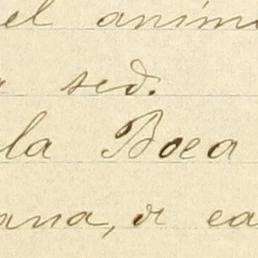 el anim
sed.
la Boca
ana, á ca